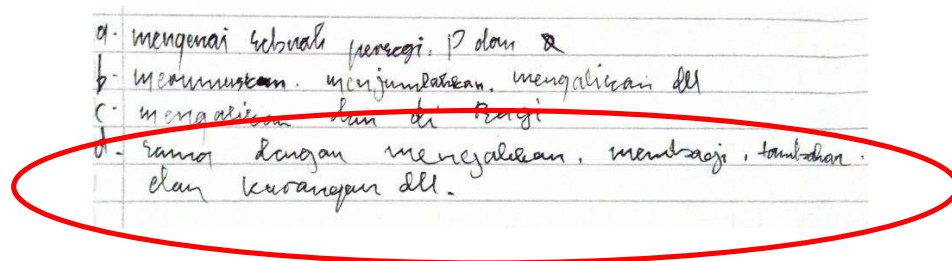 a. mengenai sebuah persegi, P dan Q
b. merumuskan. menjumlahkan. mengalikan dll
c. mengalikan dan di Bagi
d. sama dengan mengalikan, membagi, tambahan.
dan kurangan dll.